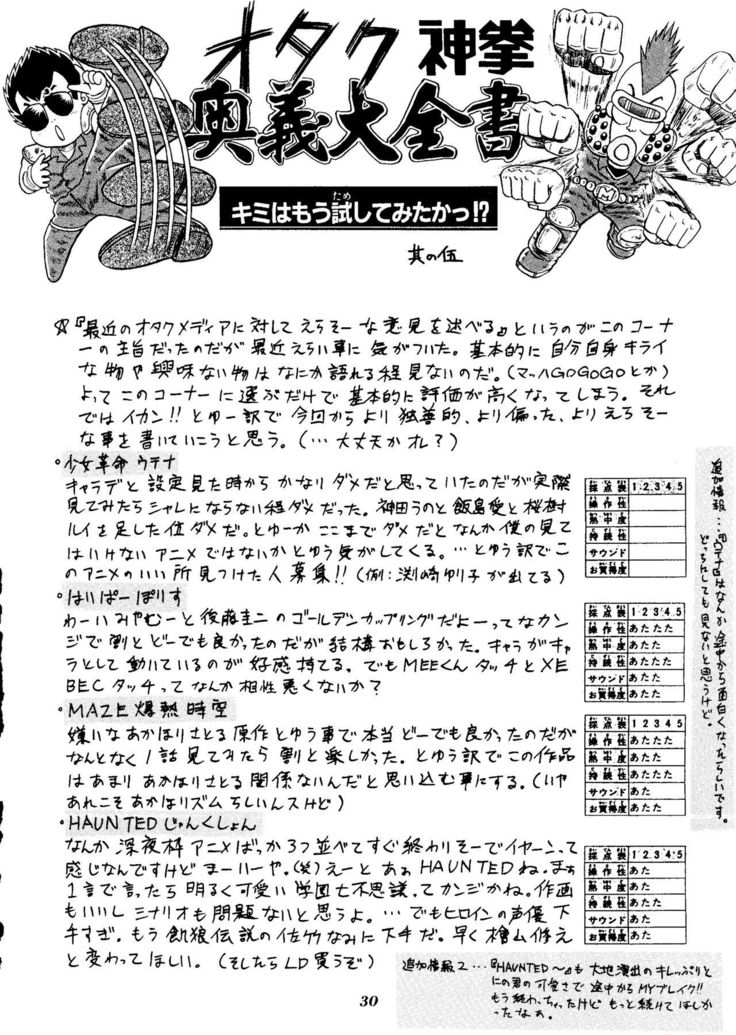 オタク神拳
奥義大全書
キミはもう試してみたかっ!?
其の伍
☆『最近のオタクメディアに対してえらそーな意見を述べる』というのがこのコーナ
ーの主旨だったのだが最近えらい事に気がついた。基本的に自分自身キライ
な物や興味ない物はなにか語れる程見ないのだ。(マッハGOGOGOとか)
よってこのコーナーに選ぶだけで基本的に評価が高くなってしまう。それ
ではイカン!!とゆー訳で今回からより独善的、より偏った、よりえらそー
な事を書いていこうと思う。(…大丈夫かオレ?)
・少女革命ウテナ
キャラデと設定見た時からかなりダメだと思っていたのだが実際
見てみたらシャレにならない程ダメだった。神田うのと飯島愛と桜樹
ルイを足した位ダメだ。とゆーかここまでダメだとなんか僕の見て
はいけないアニメではないかとゆう気がしてくる。…とゆう訳でこ
のアニメのいい所見つけた人募集!!(例:渕崎ゆり子が出てる)
採点表 1 2 3 4 5
操作性
熱中度
持続性
サウンド
お買得度
追加情報…『ウテナ』はなんか途中から面白くなったらしいです。
どっちにしても見ないと思うけど。
・はいぱーぽりす
わーいみやむーと後藤圭二のゴールデンカップリングだよーってなカン
ジで割とどーでも良かったのだが結構おもしろかった。キャラがキャ
ラとして動いているのが好感持てる。でもMEEくんタッチとXE
BECタッチってなんか相性悪くないか?
採点表 1 2 3 4 5
操作性 あたたた
熱中度 あたたた
持続性 あたたたた
サウンド あたた
お買得度 あたた
・MAZE爆熱時空
嫌いなあかほりさとる原作とゆう事で本当どーでも良かったのだが
なんとなく1話見てみたら割と楽しかった。とゆう訳でこの作品
はあまりあかほりさとる関係ないんだと思い込む事にする。(いや
あれこそあかほりズムらしいんスけど)
採点表 1 2 3 4 5
操作性 あたたた
熱中度 あたた
持続性 あたたた
サウンド あた
お買得度 あたた
・HAUNTEDじゃんくしょん
なんか深夜枠アニメばっか3つ並べてすぐ終わりそーでイヤーンって
感じなんですけどまーいーや。(笑)えーとあぁHAUNTEDね。まぁ
1言で言ったら明るく可愛い学園七不思議ってカンジかね。作画
もいいしシナリオも問題ないと思うよ。…でもヒロインの声優下
手すぎ。もう餓狼伝説の佐竹なみに下手だ。早く檜山修之
と変わってほしい。(そしたらLD買うぞ)
採点表 1 2 3 4 5
操作性 あた
熱中度 あた
持続性 あたた
サウンド あたた
お買得度 あたた
追加情報2…『HAUNTED〜』も大地演出のキレっぷりと
にの君の可愛さで途中からMYブレイク!!
もう終わっちゃったけどもっと続けてほしか
ったなぁ。
30